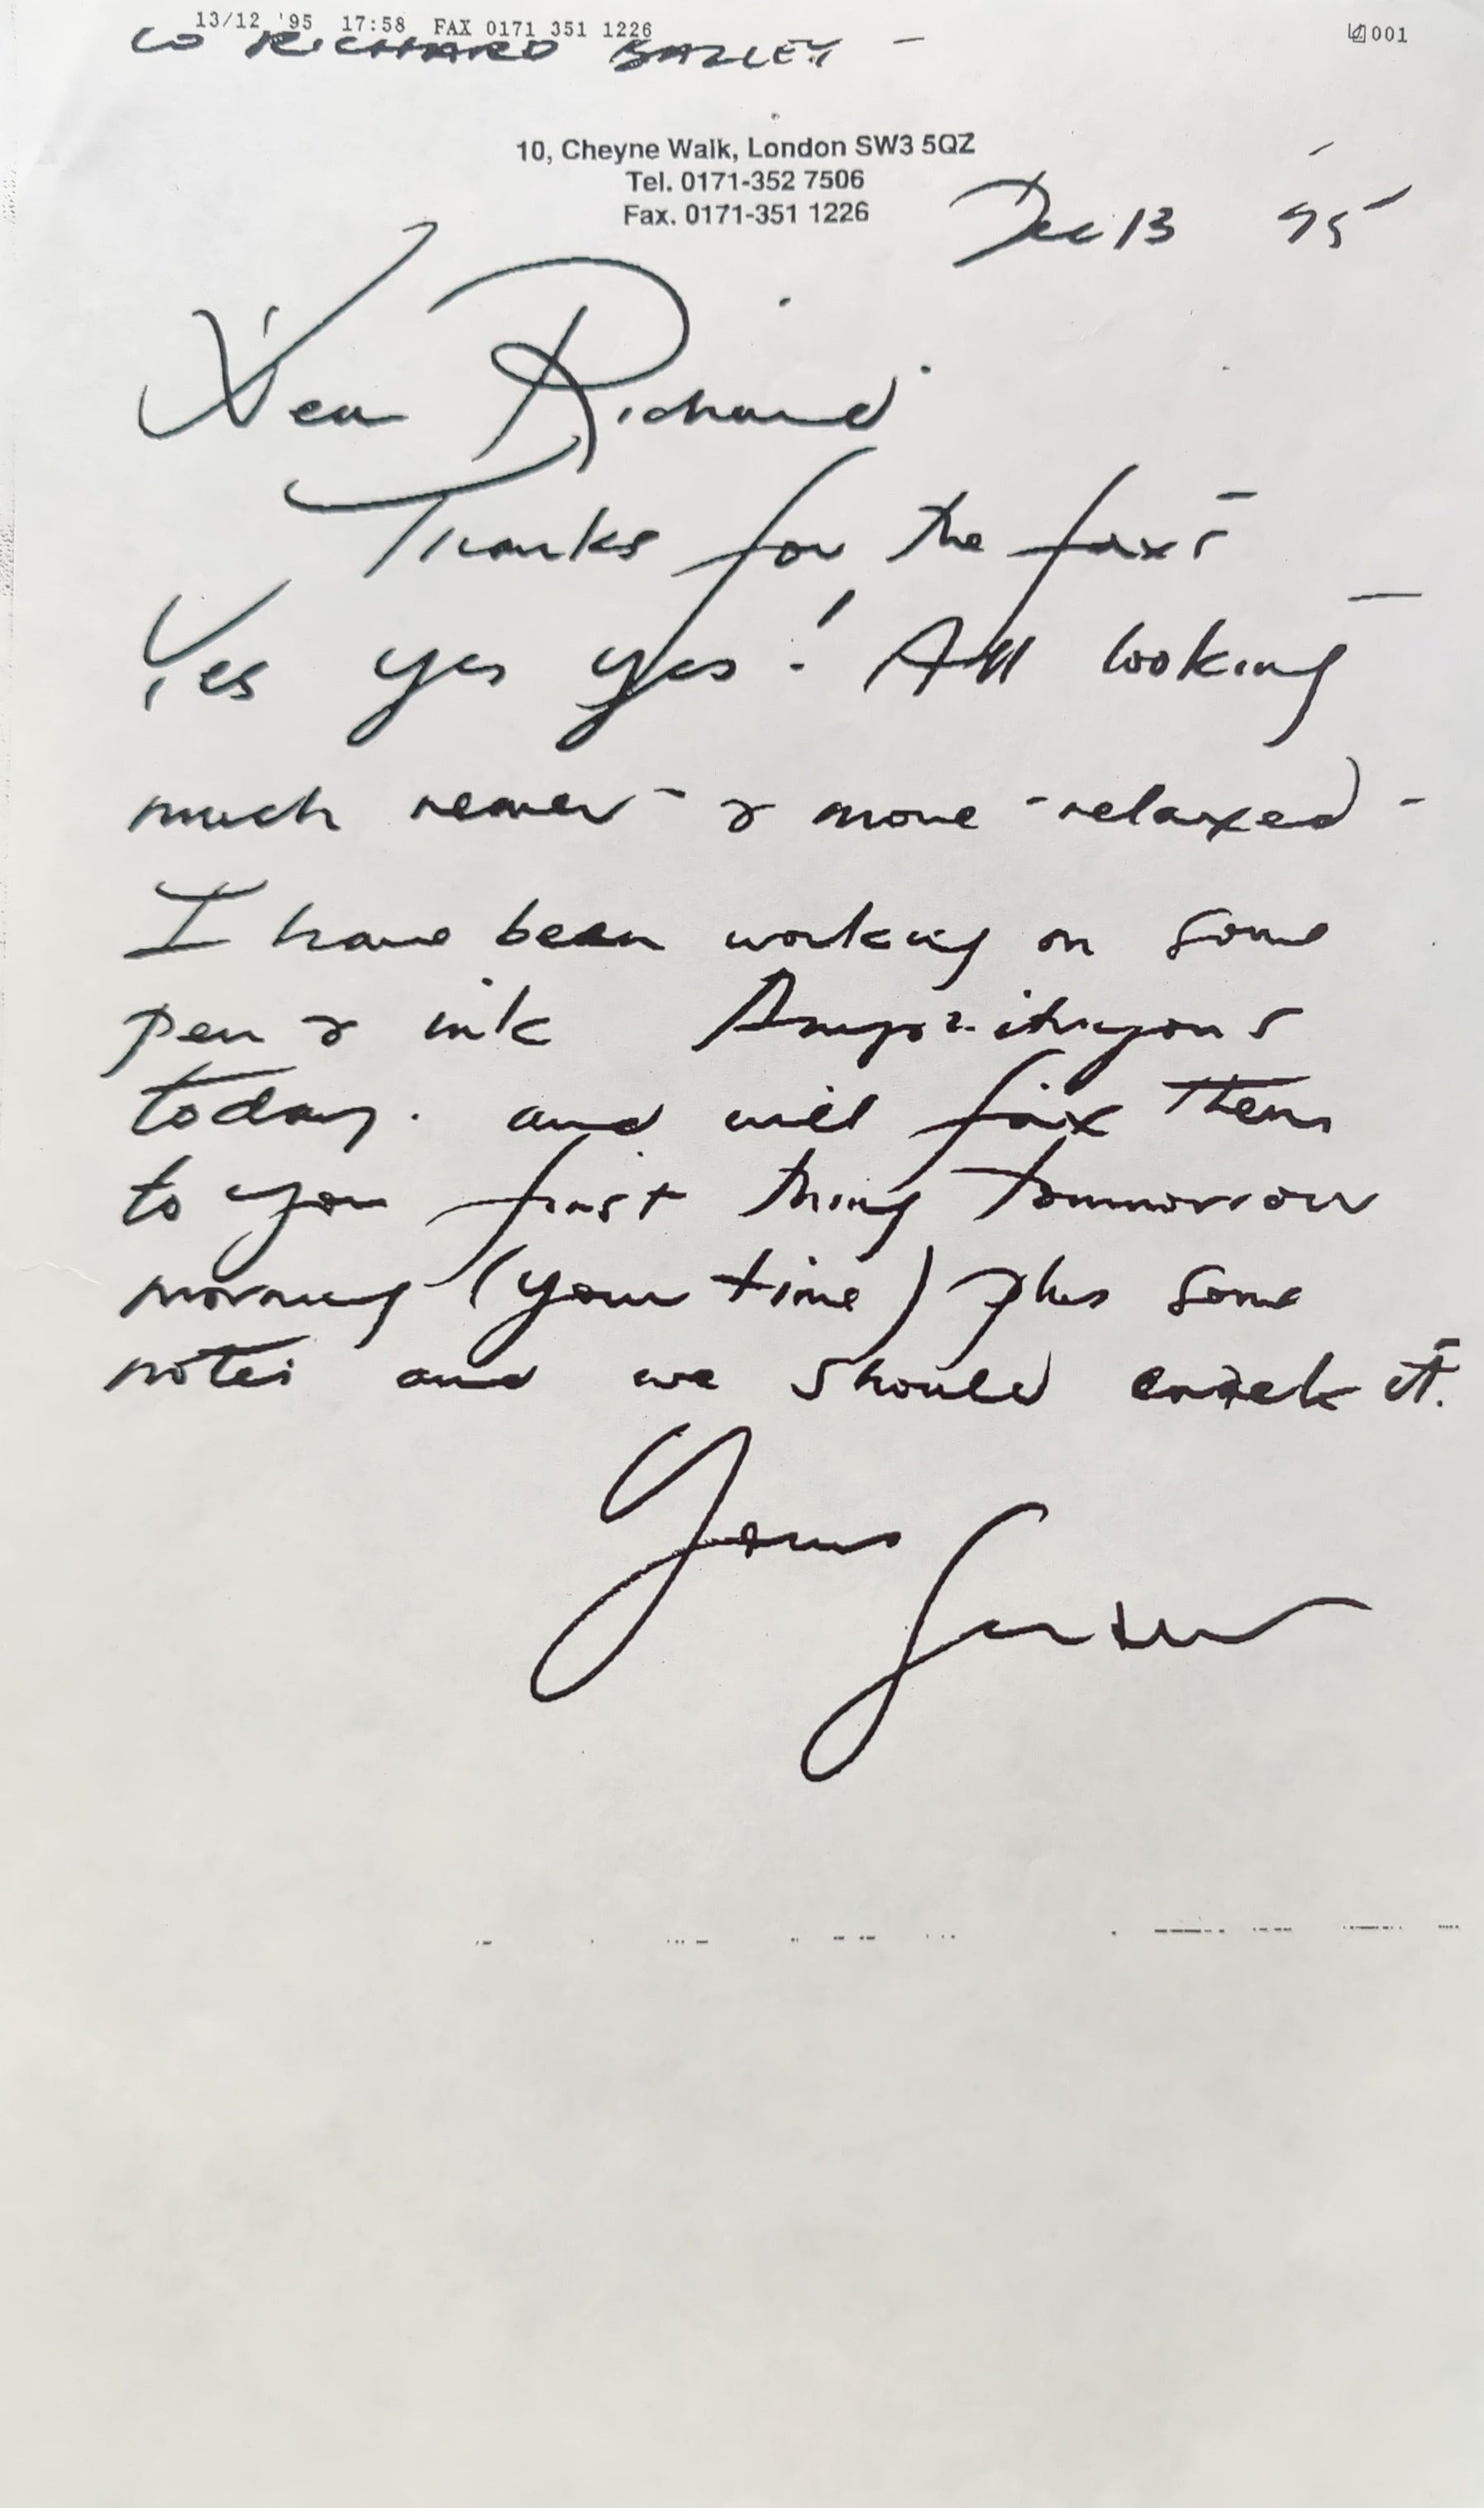 13/12 '95 17:58 FAX 0171 351 1226 001
RICHARD BAILEY -
10, Cheyne Walk, London SW3 5QZ
Tel. 0171-352 7506
Fax. 0171-351 1226
Dec 13 95
Dear Richard
Thanks for the faxs
Yes yes yes! All looking
much nearer & more relaxed -
I have been working on some
pen & ink
today. and will fax them
to you first thing tommorrow
morning (your time) plus some
notes and we should crack it.
Yours